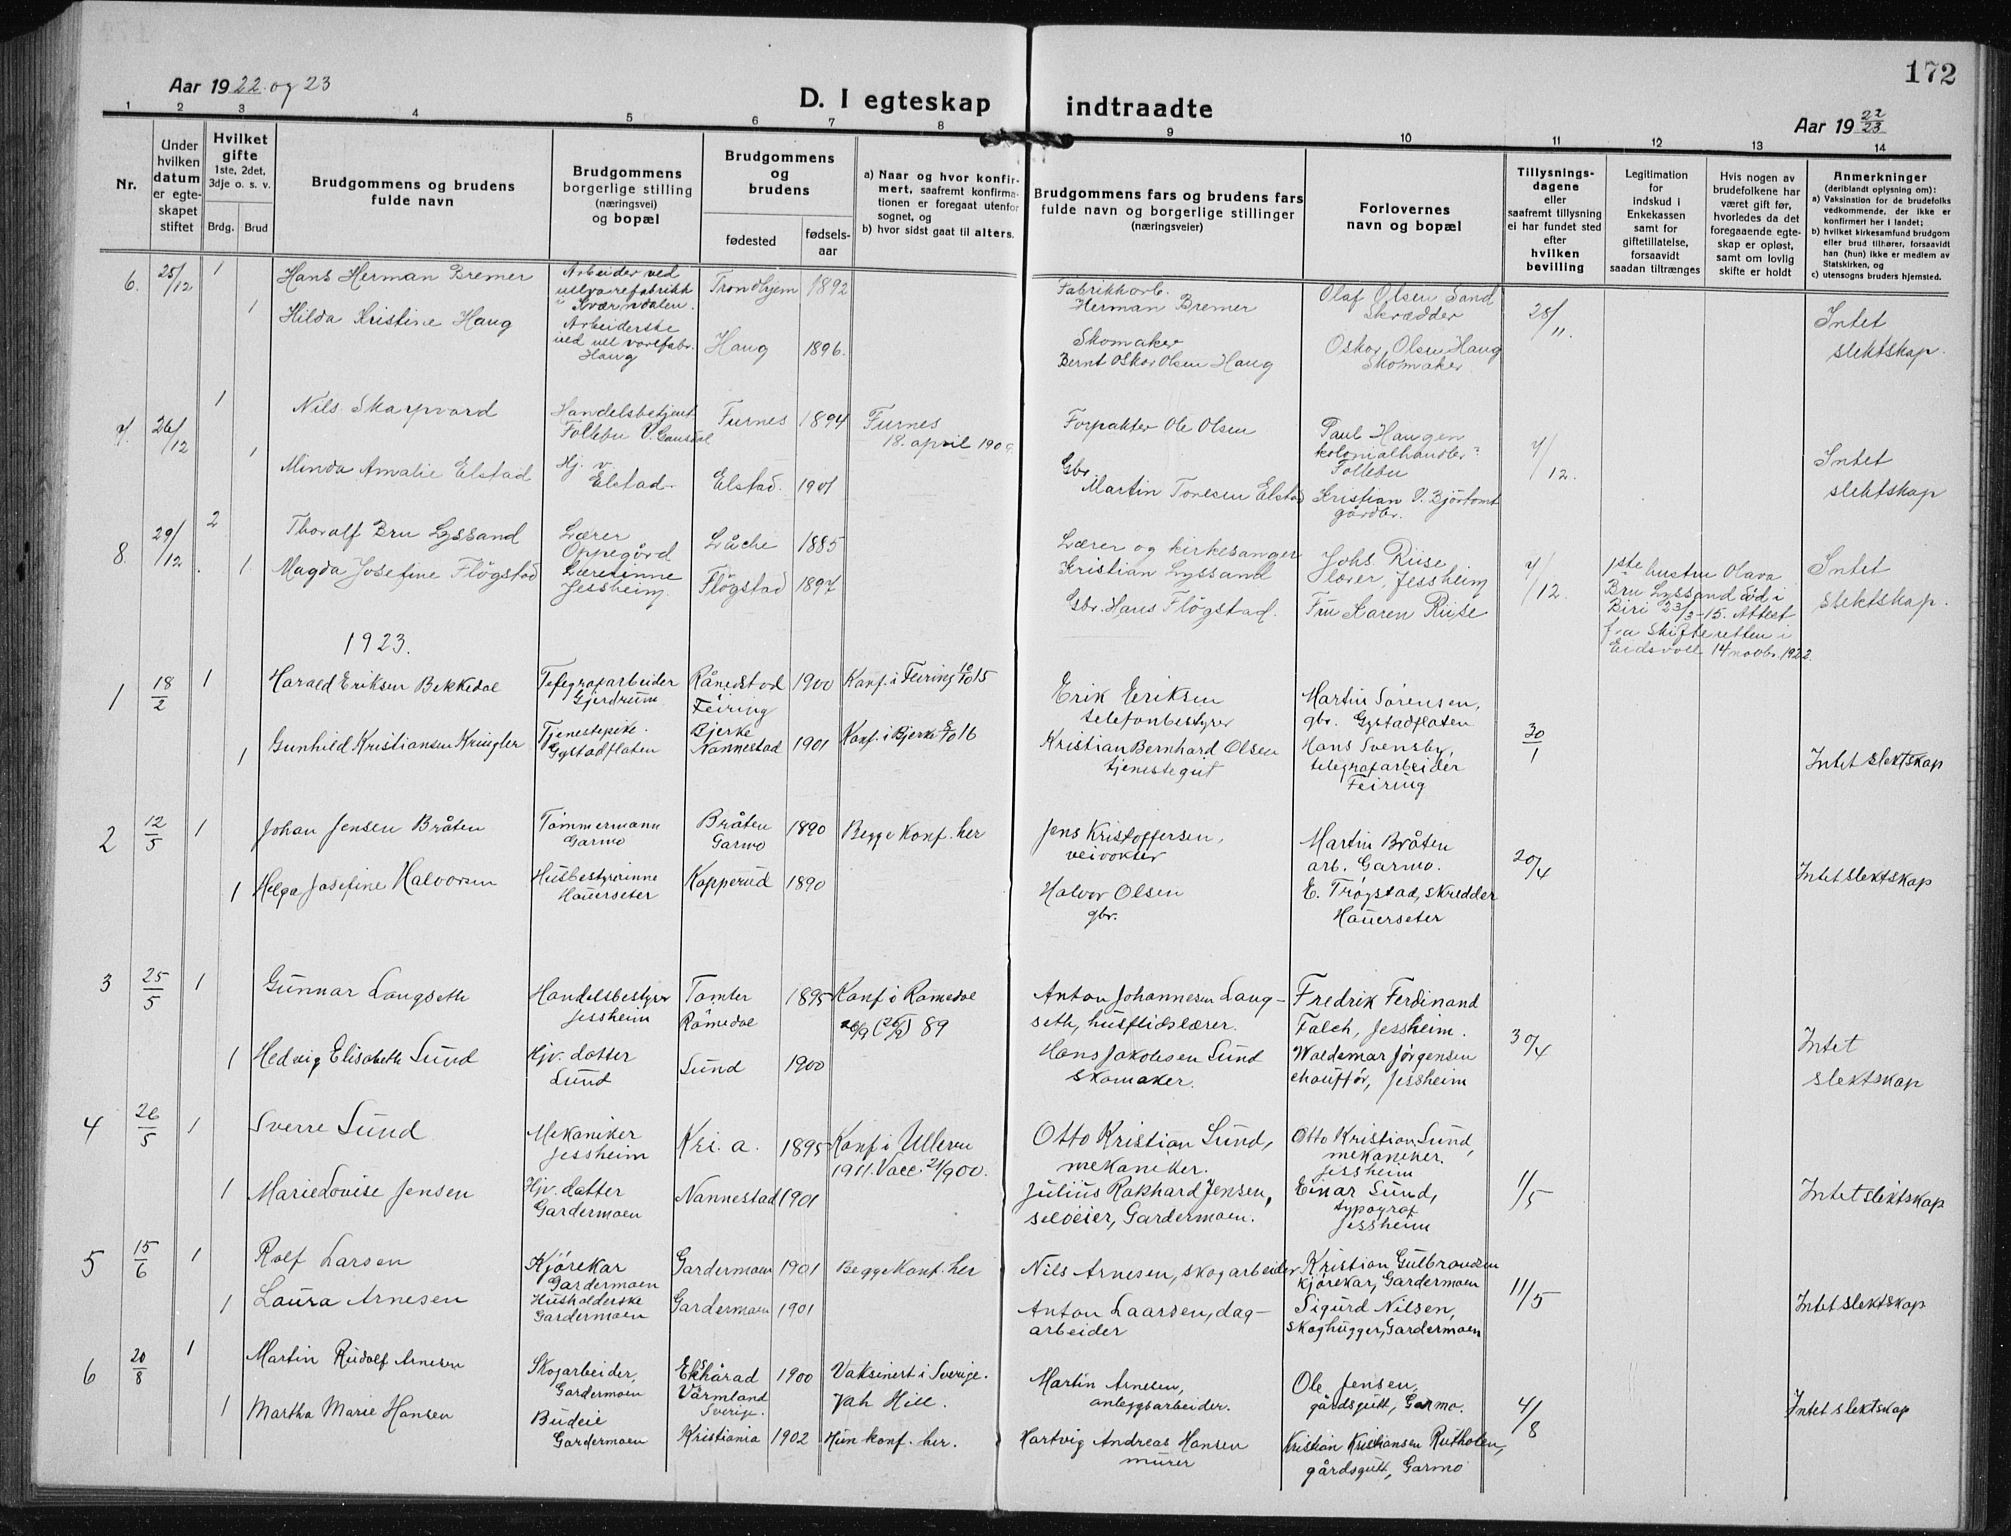 172
Aar 1922 og 23
D. I egteskap indtraadte
Aar 19 22/23
1 2 3 4 5 6 7 8 9 10 11 12 13 14
Nr.
Under hvilken datum er egteskapet stiftet
Hvilket gifte 1ste, 2det, 3dje o. s. v.
Brdg. Brud
Brudgommens og brudens fulde navn
Brudgommens borgerlige stilling (næringsvei) og bopæl
Brudgommens og brudens
fødested
fødsels-aar
a) Naar og hvor konfirmert, saafremt konfirmationen er foregaat utenfor sognet, og
b) hvor sidst gaat til alters.
Brudgommens fars og brudens fars fulde navn og borgerlige stillinger (næringsveier)
Forlovernes navn og bopæl
Tillysningsdagene eller saafremt tillysning ei har fundet sted efter hvilken bevilling
Legitimation for indskud i Enkekassen samt for giftetillatelse, forsaavidt saadan tiltrænges
Hvis nogen av brudefolkene har været gift før, hvorledes da det foregaaende egteskap er opløst, samt om lovlig skifte er holdt
Anmerkninger
(deriblandt oplysning om):
a) Vaksination for de brudefolks vedkommende, der ikke er konfirmert her i landet;
b) hvilket kirkesamfund brudgom eller brud tilhører, forsaavidt han (hun) ikke er medlem av Statskirken, og
c) utensogns bruders hjemsted.
6. 25/12 1 Hans Herman Bremer Arbeider ved ullvarefabrikk i Kværndalen. Trondhjem 1892 Fabrikkarb. Herman Bremer Olaf Olsen Sand Skrædder 28/11. Intet slektskap.
1 Hilda Kristine Haug Arbeiderske ved ull varefabr. Haug Haug 1896. Skomaker Bernt Oskar Olsen Haug Oskar Olsen Haug Skomaker
7. 26/12 1 Nils Skarpvard Handelsbetjent Follebu V. Gausdal Furnes 1894 Furnes 18. april 190 Forpakter Ole Olsen Paul Haugen kolonialhandler Follebu 7/12. Intet slektskap
1 Minda Amalie Elstad Hj. v. Elstad. Elstad. 1901 Gbr. Martin Toresen Elstad Kristian O. Bjørtomt gårdbr.
8. 29/12. 2 Thoralf Bru Lyssand Lærer Oppegård 1885 Lærer og kirkesanger Kristian Lyssand Johs. Riise lærer, Jessheim 7/12. 1ste hustru Olava Bru Lyssand død i Biri 23/3-15. Attest fra skifteretten i Eidsvoll 14 novbr. 1922. Intet slektskap.
1. Magda Josefine Fløgstad Lærerinne Jessheim. Fløgstad 1897 Gbr. Hans Fløgstad. Fru Karen Riise
1923.
1 18/2 1 Harald Eriksen Bekkedal Telegrafarbeider Gjerdrum Rånedstad Feiring 1900 Konf. i Feiring 15 Erik Eriksen telefonbestyrer Martin Sørensen, gbr. Gystadflaten 30/1 Intet slektskap
1 Gunhild Kristiansen Kringler Tjenestepike. Gystadflaten Bjerke Nannestad 1901 Konf. i Bjerke 16 Kristian Bernhard Olsen tjenestegut Hans Svensby, telegrafarbeider Feiring
2 12/5 1 Johan Jensen Bråten Tømmermann Garmo Bråten Garmo 1890 Begge konf. her Jens Kristoffersen, veivokter Martin Bråten arb. Garmo. 20/4 Intet slektskap
1 Helga Josefine Halvorsen Husbestyrerinne Hauerseter Kopperud 1890 Halvor Olsen gbr. E. Trøgstad, skredder Hauerseter
3 25/5 1 Gunnar Langseth Handelsbestyrer Jessheim Tomter Romedal 1895 Konf i Romedal 26/9 89 Anton Johannesen Langseth, husflidslærer. Fredrik Ferdinand Falch, Jessheim. 30/4 Intet slektskap
1 Hedvig Elisabeth Sund Hjv. datter Sund Sund 1900 Hans Jakobsen Sund skomaker. Waldemar Jørgensen chauffør, Jessheim
4 26/5 1 Sverre Sund Mekaniker Jessheim Kri. a. 1895 Konf i Ulleren 1911. Vacc. 21/9 00. Otto Kristian Sund, mekaniker. Otto Kristian Sund, mekaniker. Jessheim 1/5 Intet slektskap
1 Marie Lovise Jensen Hjv. datter Gardermoen Nannestad 1901 Julius Rakhard Jensen, seløeier, Gardermoen. Einar Sund, typograf Jessheim
5 15/6 1 Rolf Larsen Kjørekar Gardermoen Gardermoen 1901 Begge konf. her Nils Arnesen, skogarbeider Kristian Gulbrandsen kjørekar, Gardermoen 11/5 Intet slektskap
1 Laura Arnesen Husholderske Gardermoen Gardermoen 1901 Anton Laarsen, dagarbeider Sigurd Nilsen, skoghugger, Gardermoen
6 20/8 1 Martin Rudolf Arnesen Skogarbeider, Gardermoen Ekshärad Värmland Sverige. 1900 Vaksinert i Sverige. Martin Arnesen, anleggsarbeider. Ole Jensen, gårdsgutt, Garmo. 4/8 Intet slektskap
1 Martha Marie Hansen Budeie Gardermoen Kristiania 1902 Hun konf. her. Hartvig Andreas Hansen murer Kristian Kristiansen Rutholen, gårdsgutt, Garmo